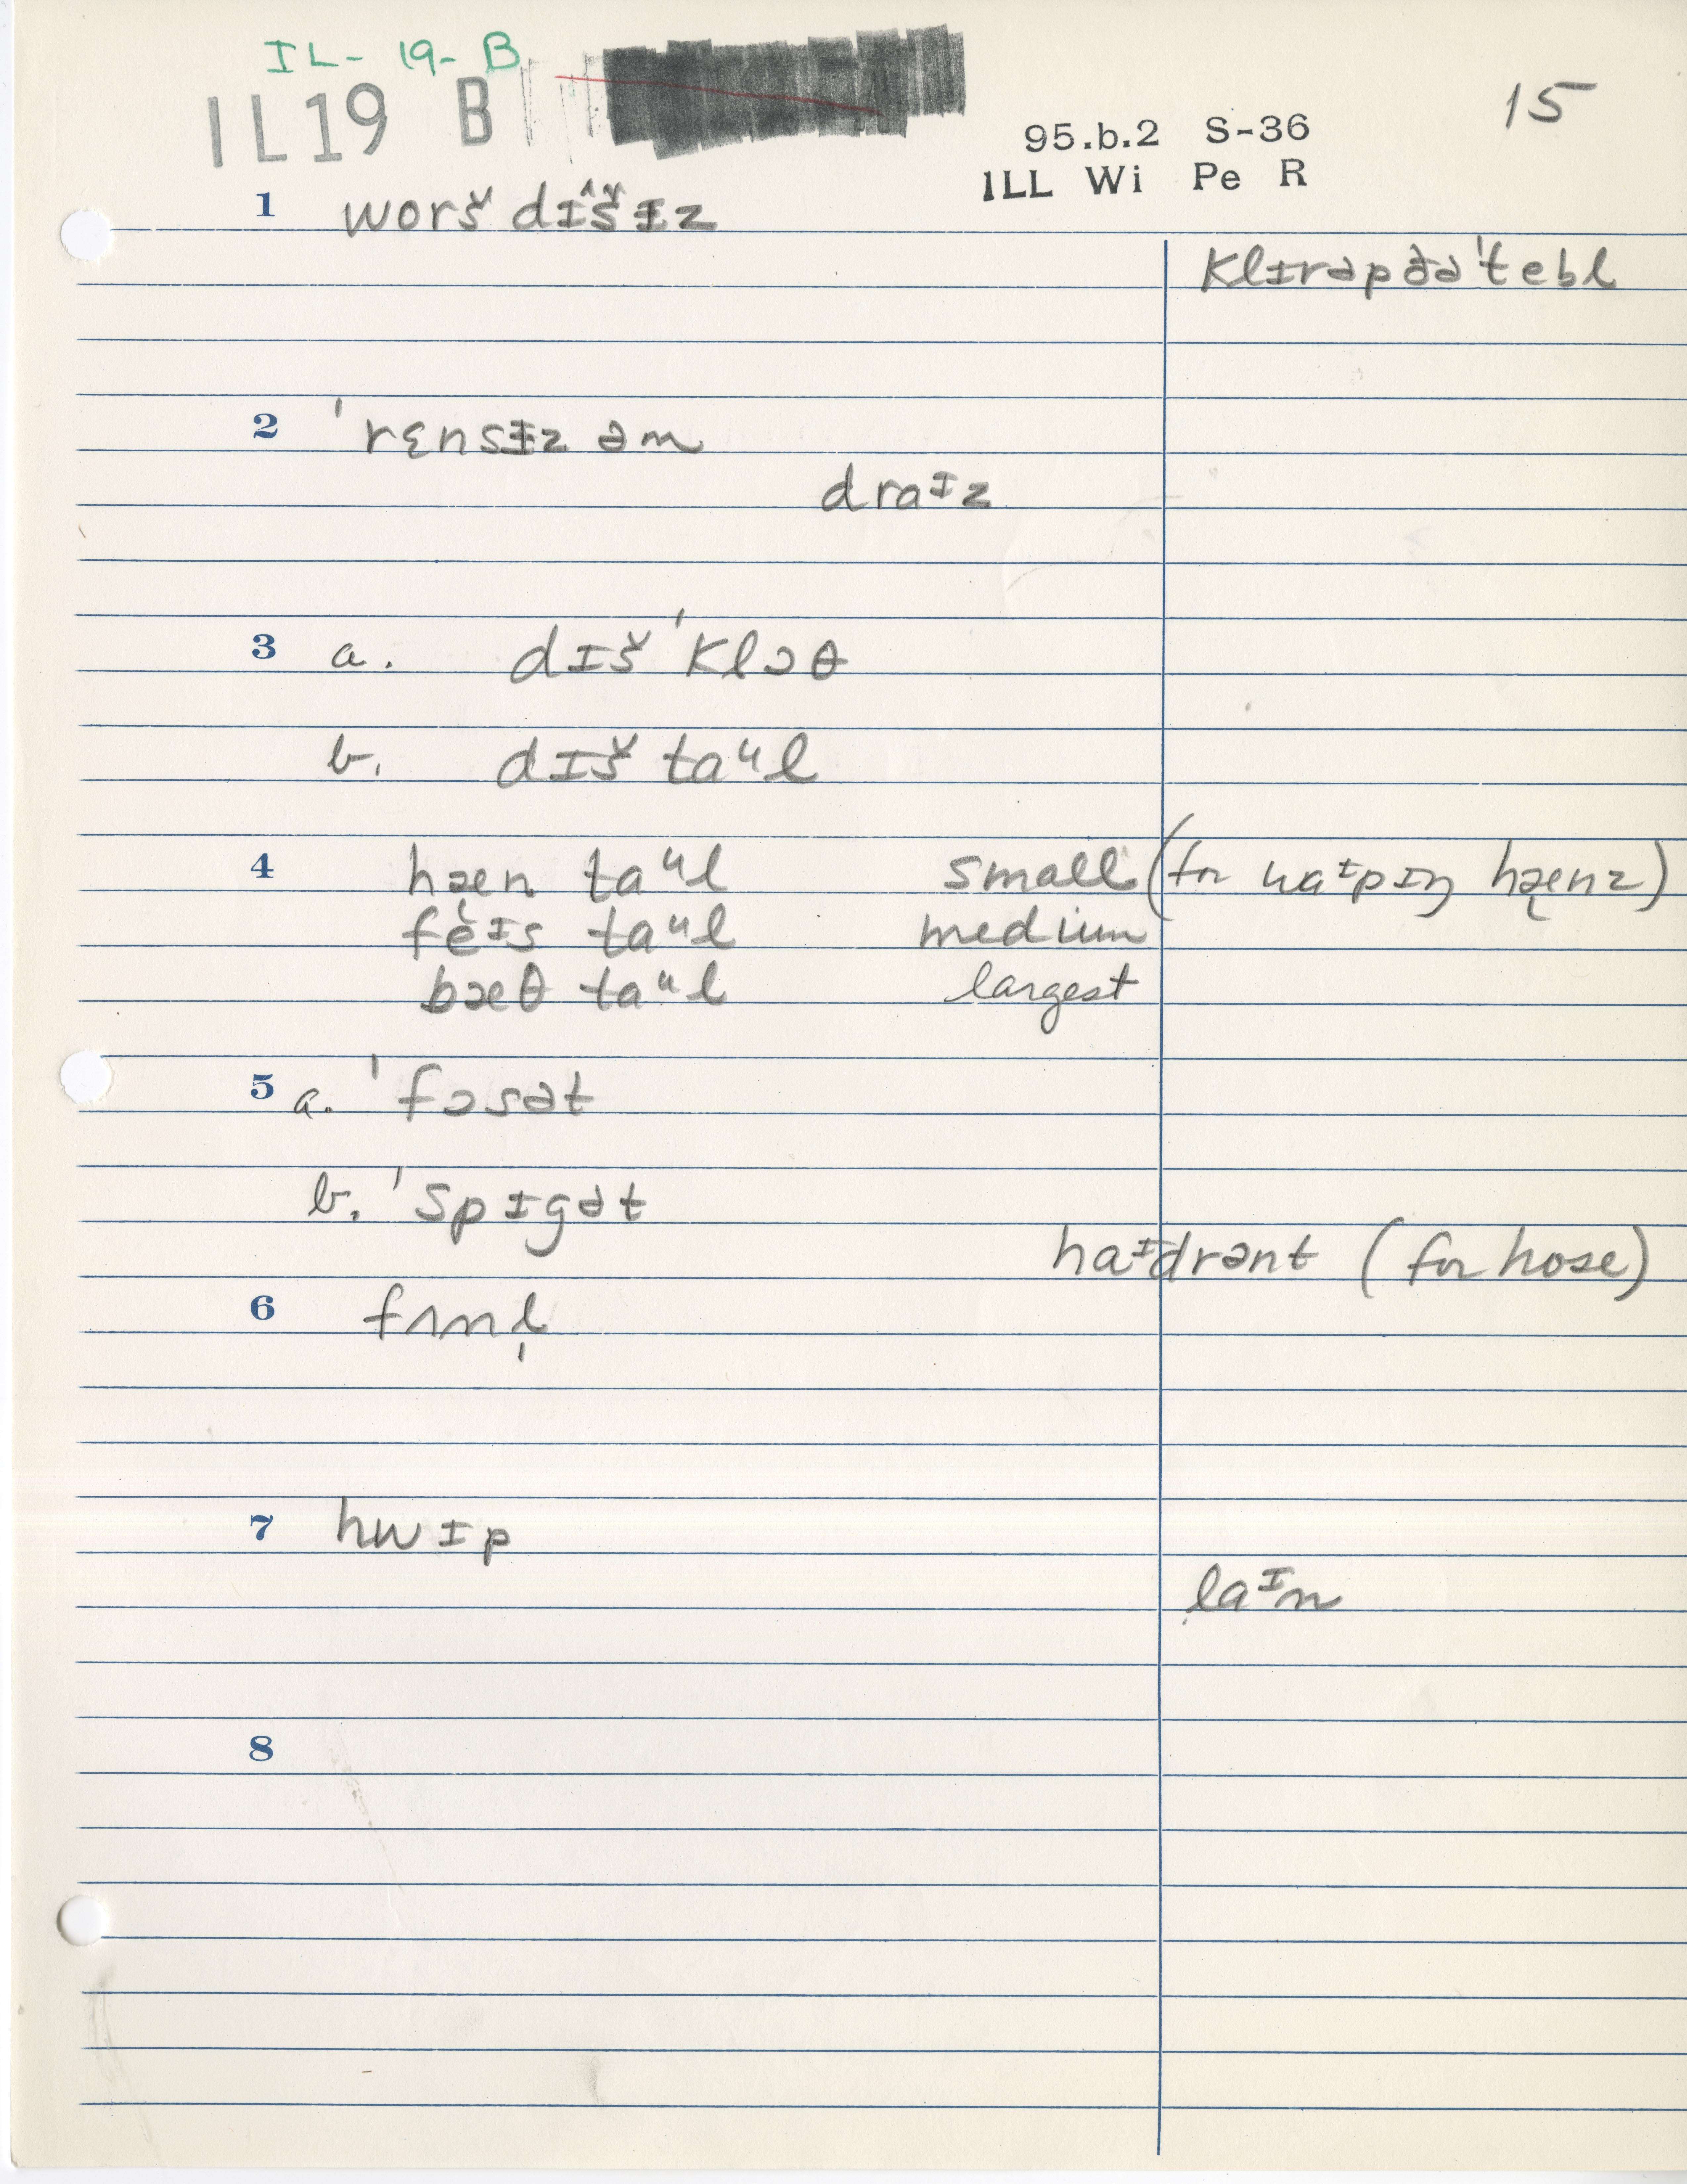 IL-19-B
IL19 B
15
95.b.2 S-36
ILL Wi Pe R
1 worš dɪ̂šɨz
klɪrəp ðə ˈtebl
2 ˈrɛnsɨz əm
draᶦz
3 a. dɪš ˈklɔθ
b. dɪš taᵘl
4 hæn taᵘl small (for waᶦpɪŋ hænz)
feɪs taᵘl medium
bæθ taᵘl largest
5 a. ˈfɔsət
b. ˈspɪgət
haᶦdrənt (for hose)
6 fʌnl̩
7 hwɪp
laᶦn
8